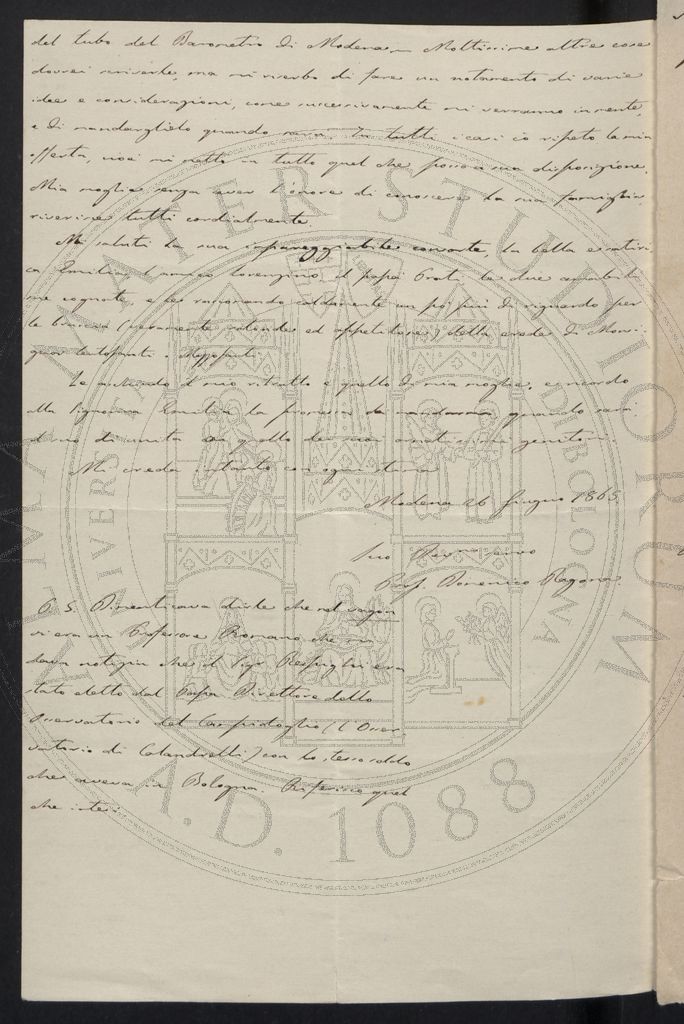 del tubo del Barometro di Modena. Moltissime altre cose
dovrei scriverle, ma mi riserbo di fare un notamento di varie
idee e considerazioni, come successivamente mi verranno in mente,
e di mandarglielo quando sarà. In tutti i casi io ripeto la mia
offerta, cioè mi metto in tutto quel che posso a sua disposizione.
Mia moglie, senza aver l'onore di conoscere la sua famiglia,
riverisce tutti cordialmente.
Mi saluti la sua impareggiabile consorte, la bella e
Emilia, l'amico Lorenzino, il papà Prati, le due
cognate, e le raccomando caldamente un po' più di riguardo per
le braccia (veramente rotonde ed appetitose) della erede di Monsi-
gnor
Le acchiudo il mio ritratto e quello di mia moglie, e ricordo
alla Signorina Emilia la promessa di mandarmi quando sarà
il suo di unita a quello dei suoi genitori.
Mi creda intanto con ogni stima
Modena 26 Giugno 1865
Suo servo
Prof. Domenico Ragona
P. S. Dimenticava dirle che nel vagon
vi era un Professore Romano che mi
dava notizia che il Sigr Respighi era
stato eletto dal Papa Direttore dello
Osservatorio del Campidoglio (l'Osser-
vatorio di Calandrelli) con lo stesso soldo
che aveva in Bologna. Riferisco quel
che intesi
ALMA MATER STUDIORUM
UNIVERSITÀ DI BOLOGNA
A.D. 1088